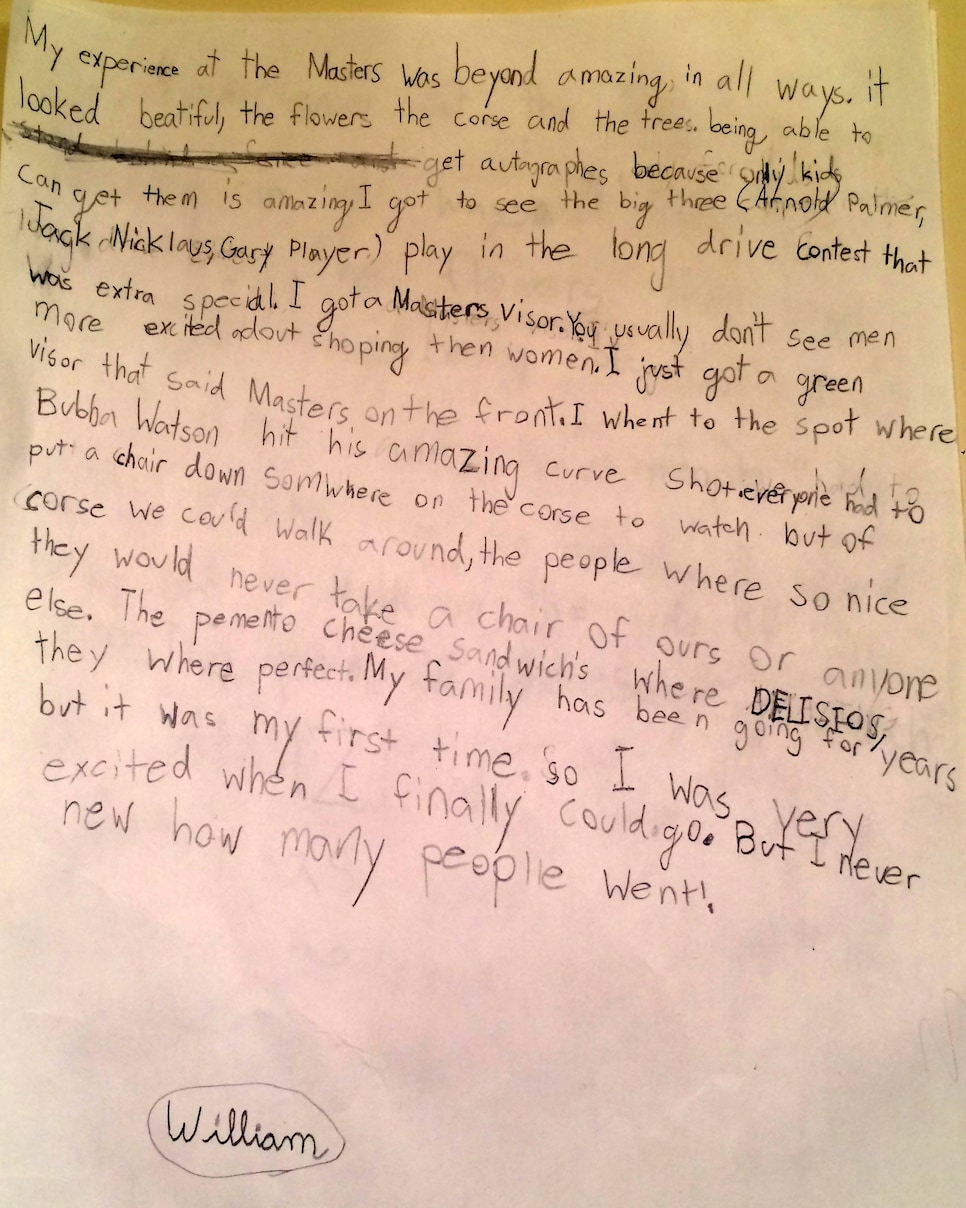 My experience at the Masters was beyond amazing, in all ways. it
looked beatiful, the flowers the corse and the trees. being able to
get autagraphes because only kids
can get them is amazing, I got to see the big three (Arnold Palmer,
Jack Nicklaus, Gary Player) play in the long drive contest that
was extra special. I got a Masters visor. You usually don't see men
more excited adout shoping then women. I just got a green
visor that said Masters on the front. I whent to the spot where
Bubba Watson hit his amazing curve shot. everyone had to
put a chair down somwhere on the corse to watch. but of
corse we could walk around, the people where so nice
they would never take a chair of ours or anyone
else. The pemento cheese sandwich's where DELISIOS,
they where perfect. My family has been going for years
but it was my first time. so I was very
excited when I finally could go. But I never
new how many people went!
William